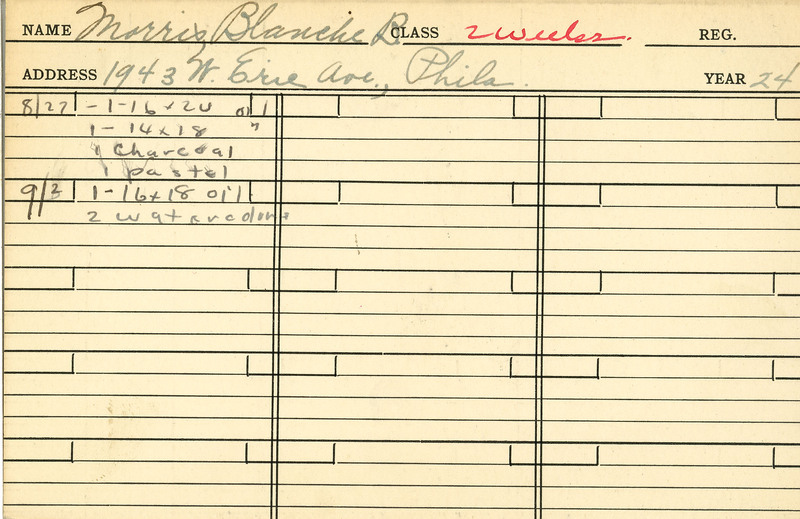 NAME Morris, Blanche B. CLASS 2 weeks. REG.
ADDRESS 1943 W. Erie Ave., Phila. YEAR 24
8/27 - 1-16x20 oil
1-14x18 "
1 Charcoal
1 pastel
9/2 1-16x18 oil
2 watercolors